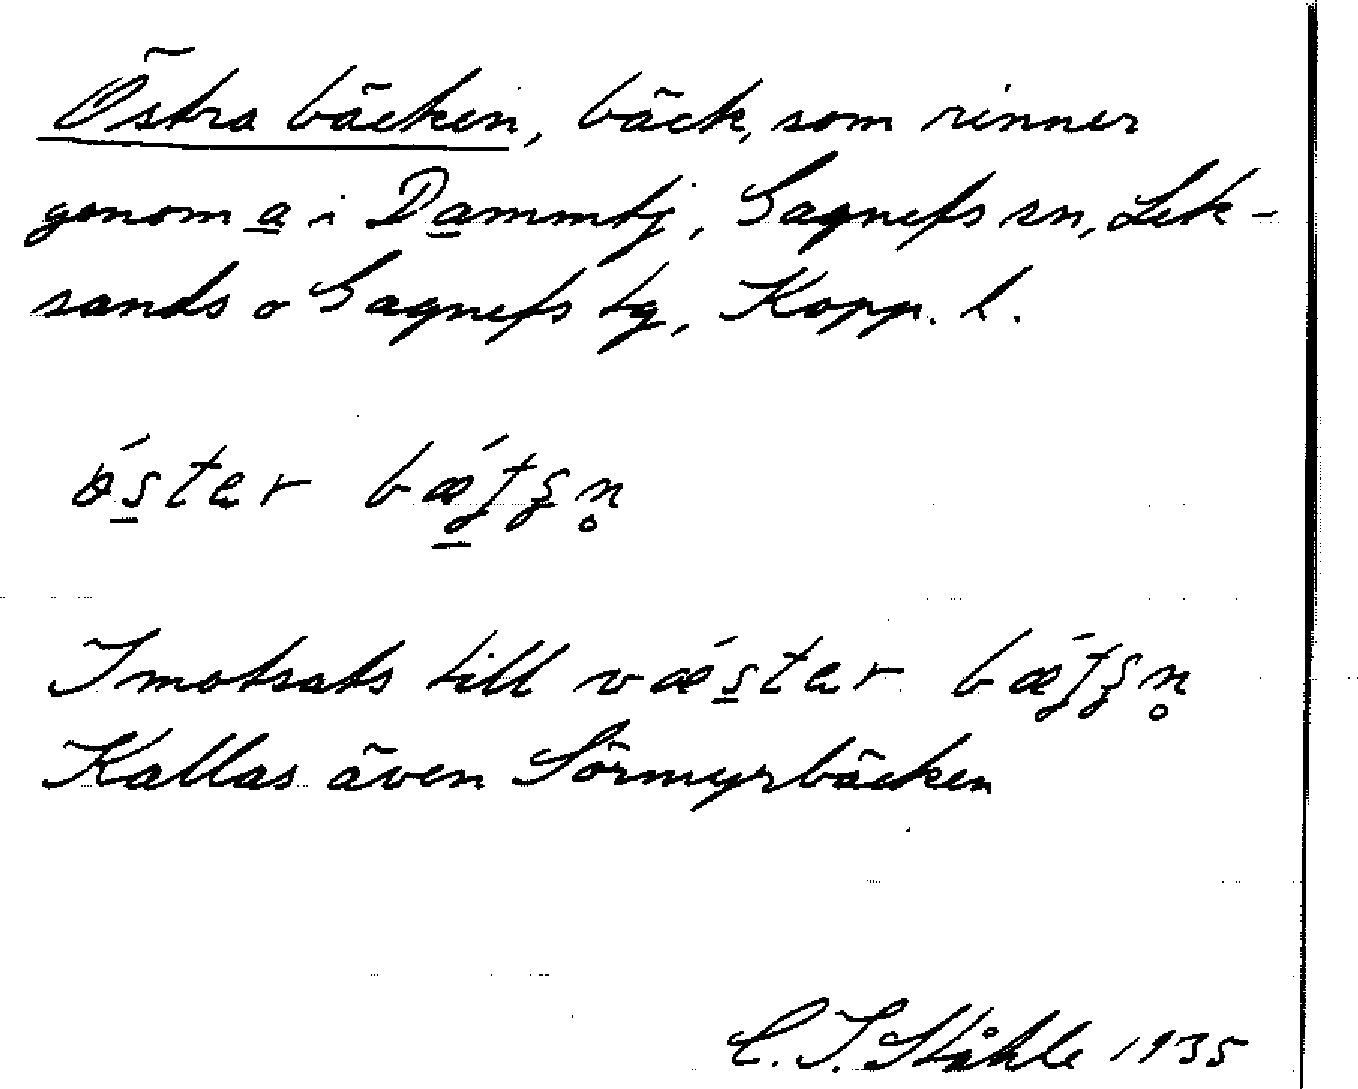 Östra bäcken, bäck, som rinner
genom a i Dammtj, Gagnefs sn, Lek-
sands o Gagnefs tg, Kopp. l.
öster
Imotsats till
Kallas även Sörmyrbäcken
C. I. Ståhle 1935